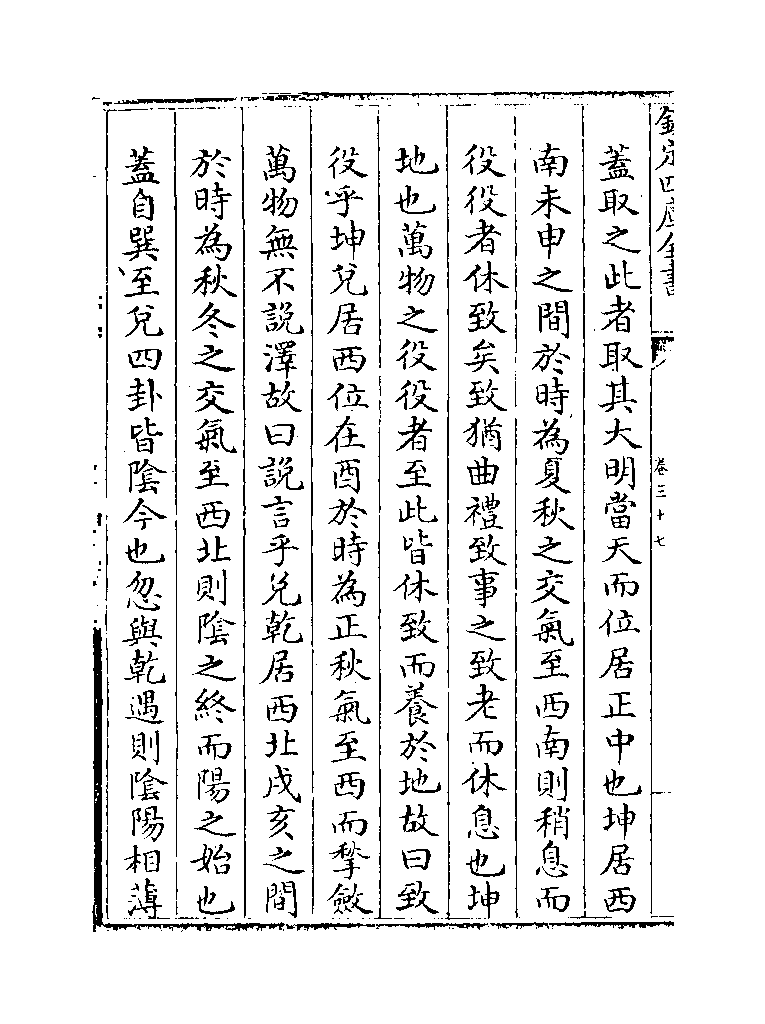 欽定四庫全書
卷三十七
蓋取之此者取其大明當天而位居正中也坤居西
南未申之間於時為夏秋之交氣至西南則稍息而
役役者休致矣致猶曲禮致事之致老而休息也坤
地也萬物之役役者至此皆休致而養於地故曰致
役乎坤兌居西位在酉於時為正秋氣至西而揫斂
萬物無不說澤故曰說言乎兌乾居西北戌亥之間
於時為秋冬之交氣至西北則陰之終而陽之始也
蓋自巽至兌四卦皆陰今也忽與乾遇則陰陽相薄